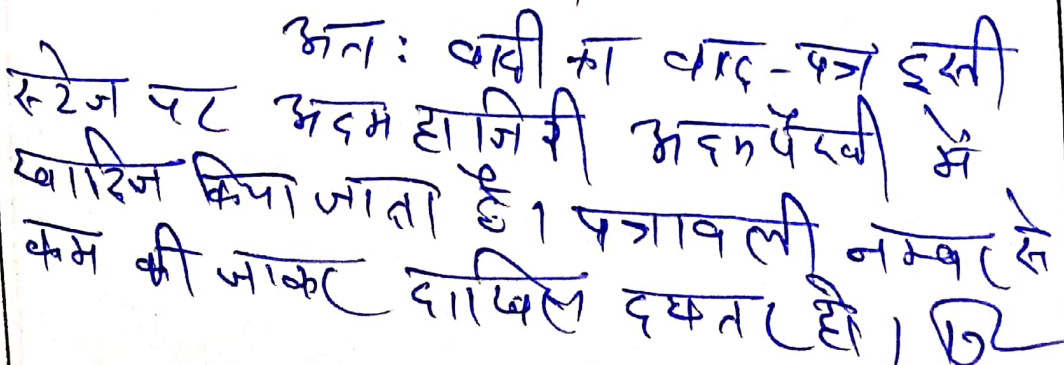 अतः वादी का वाद-पत्र इसी
स्टेज पर अदम हाजिरी अदमपैरवी में
खारिज किया जाता है। पत्रावली नम्बर से
कम की जाकर दाखिल दफ्तर हो।